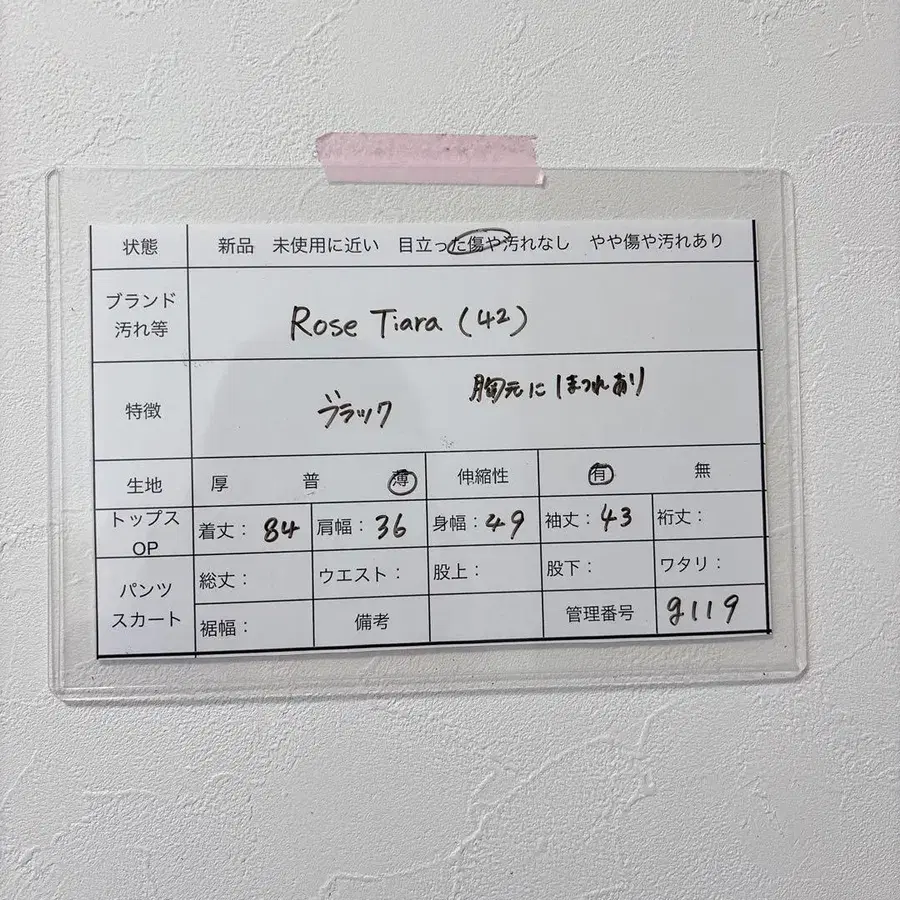 状態 新品 未使用に近い 目立った傷や汚れなし やや傷や汚れあり
ブランド
汚れ等
Rose Tiara (42)
特徴
ブラック
胸元にほつれあり
生地 厚 普 薄 伸縮性 有 無
トップス
OP
着丈: 84 肩幅: 36 身幅: 49 袖丈: 43 裄丈:
パンツ
スカート
総丈: ウエスト: 股上: 股下: ワタリ:
裾幅: 備考 管理番号 g119